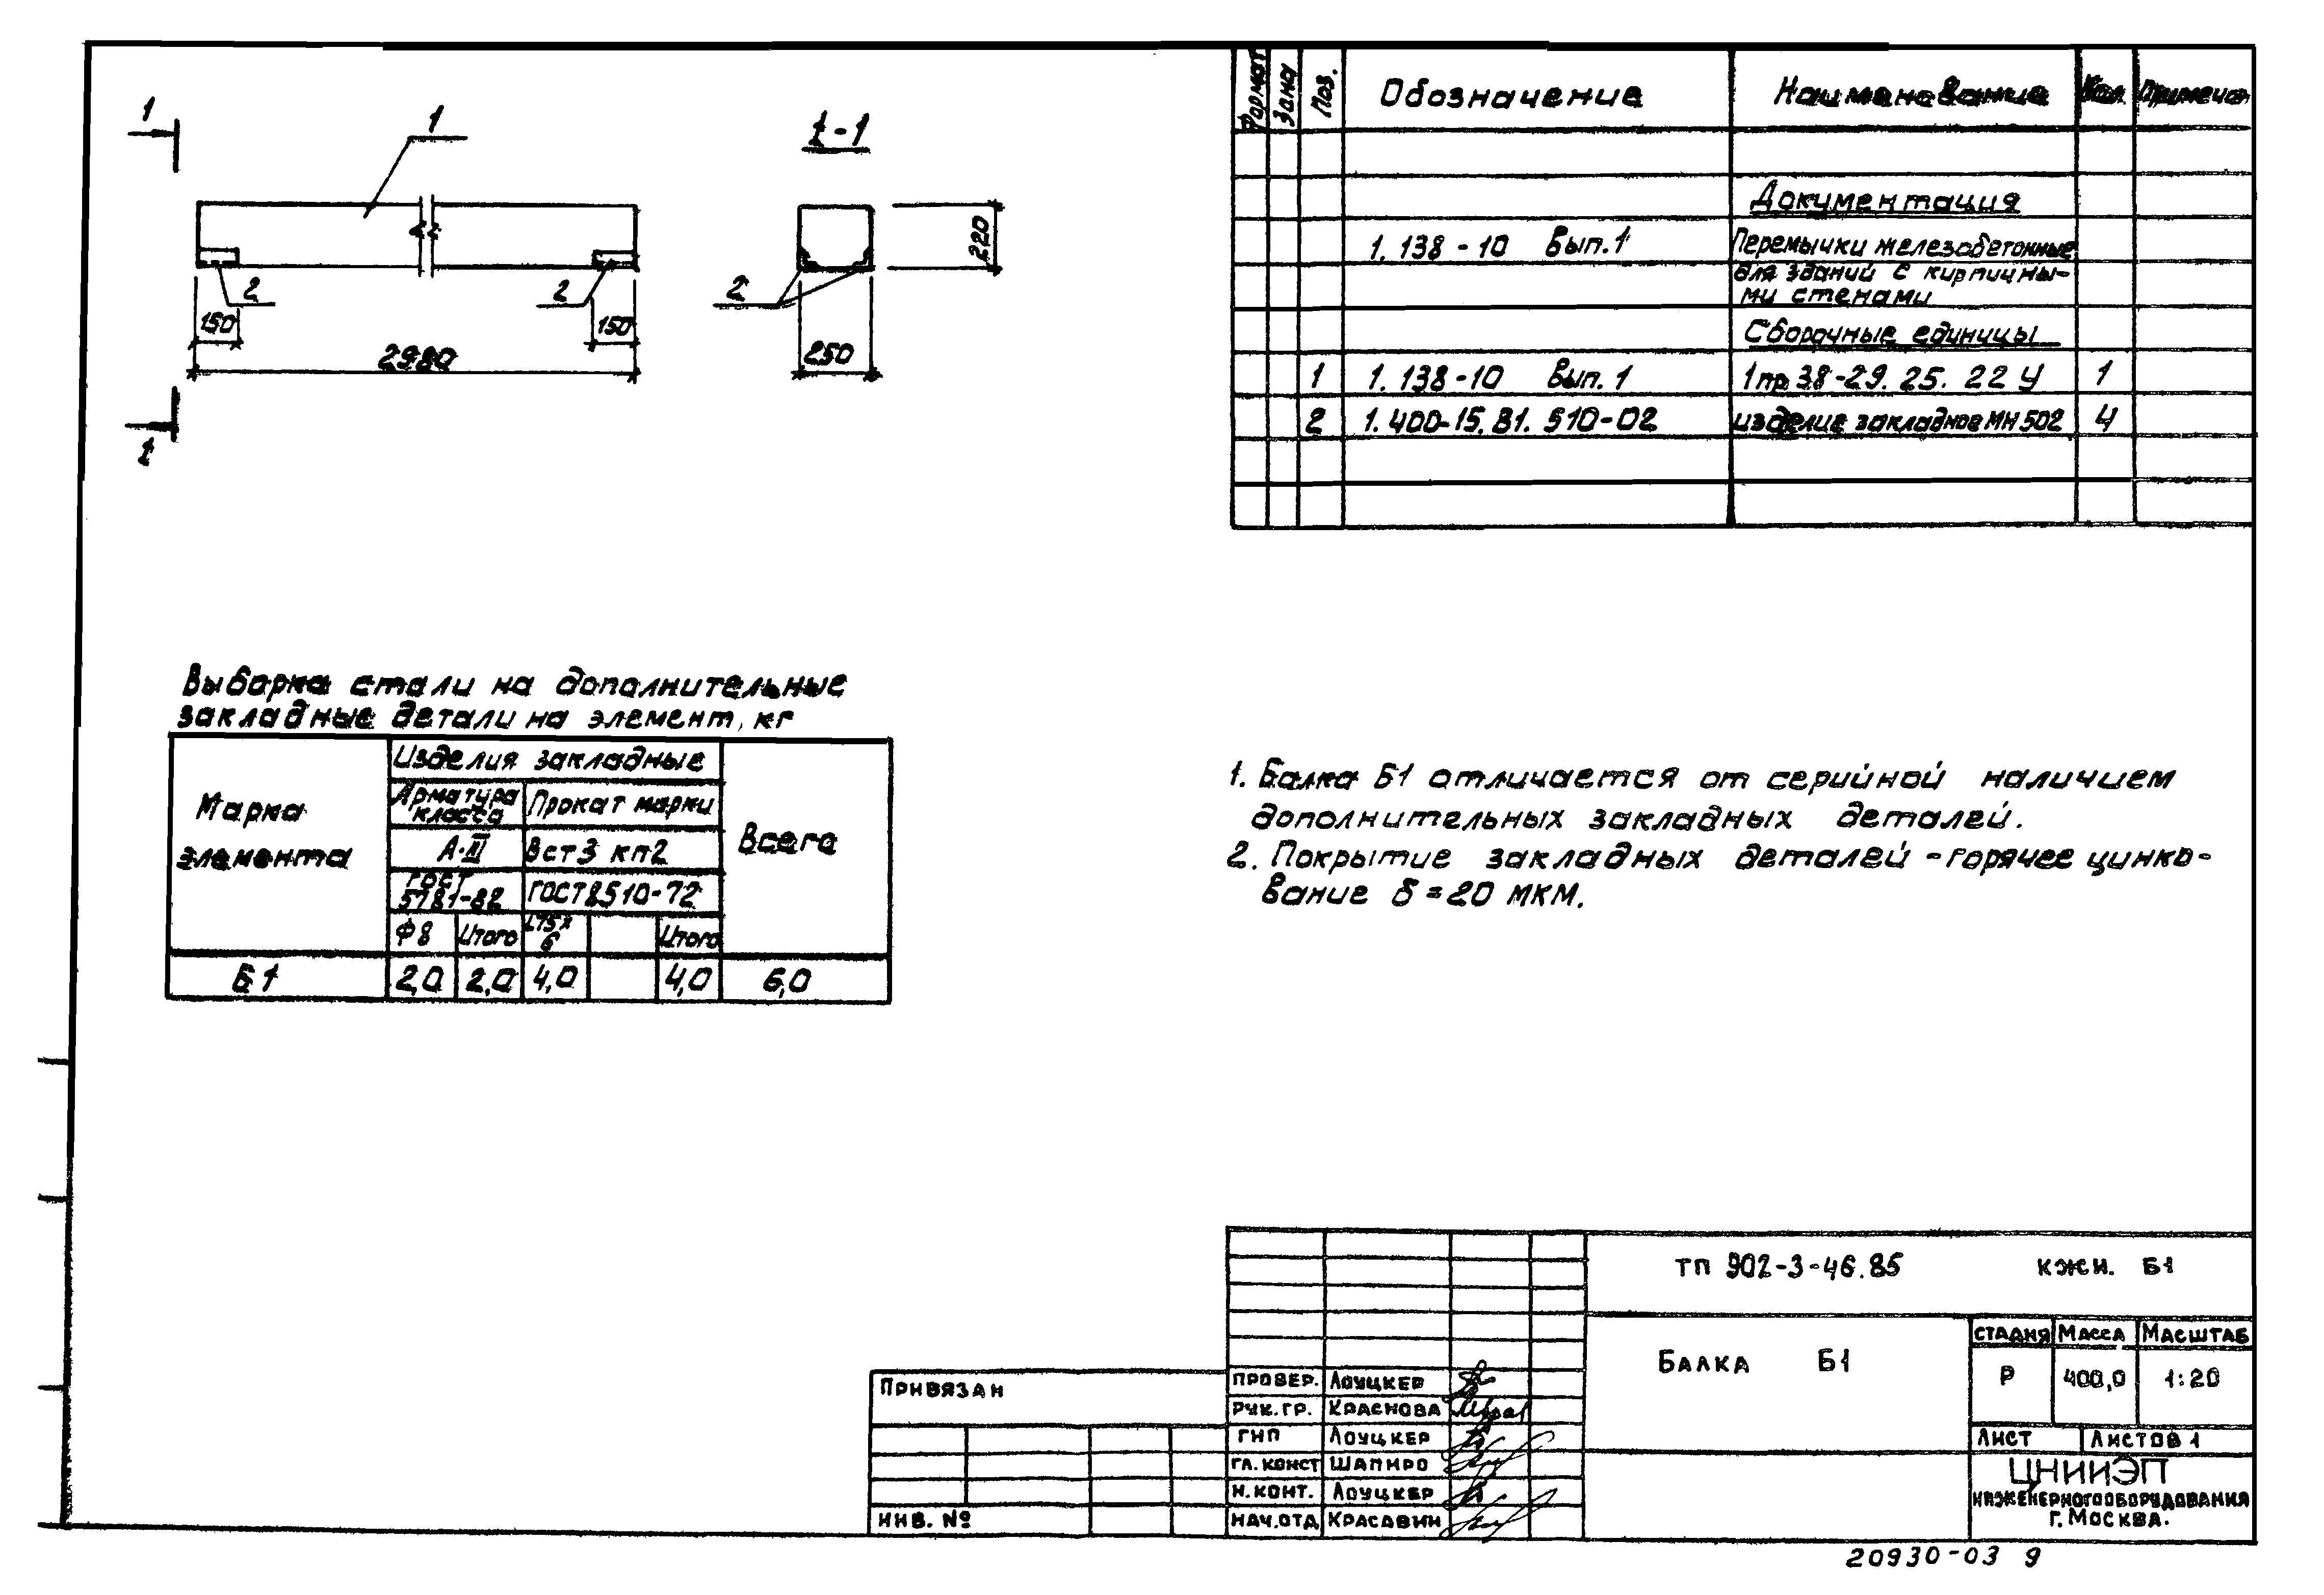 1
1
1-1
2
2
2
150
150
2980
250
220
1
Формат
Зона
Поз.
Обозначение
Наименование
Кол.
Примечан
Документация
1.138-10 Вып.1
Перемычки железобетонные
для зданий с кирпичны-
ми стенами
Сборочные единицы
1
1.138-10 Вып.1
1пр 38-29.25.22 У
1
2
1.400-15.В1.510-02
изделие закладное МН 502
4
Выборка стали на дополнительные
закладные детали на элемент, кг
Марка
элемента
Изделия закладные
Арматура
класса
Прокат марки
Всего
А-III
Вст3 кп2
ГОСТ
5781-82
ГОСТ 8510-72
Ф8
Итого
L75х
6
Итого
Б1
2,0
2,0
4,0
4,0
6,0
1. Балка Б1 отличается от серийной наличием
дополнительных закладных деталей.
2. Покрытие закладных деталей - горячее цинко-
вание δ=20 мкм.
ТП 902-3-46.85
КЖИ. Б1
БАЛКА Б1
СТАДИЯ
МАССА
МАСШТАБ
Р
400,0
1:20
ЛИСТ
ЛИСТОВ 1
ЦНИИЭП
ИНЖЕНЕРНОГО ОБОРУДОВАНИЯ
Г. МОСКВА.
ПРИВЯЗАН
ИНВ. №
ПРОВЕР. ЛОУЦКЕР
РУК.ГР. КРАСНОВА
ГИП ЛОУЦКЕР
ГЛ.КОНСТ ШАПИРО
Н.КОНТ. ЛОУЦКЕР
НАЧ.ОТД КРАСАВИН
20930-03 9